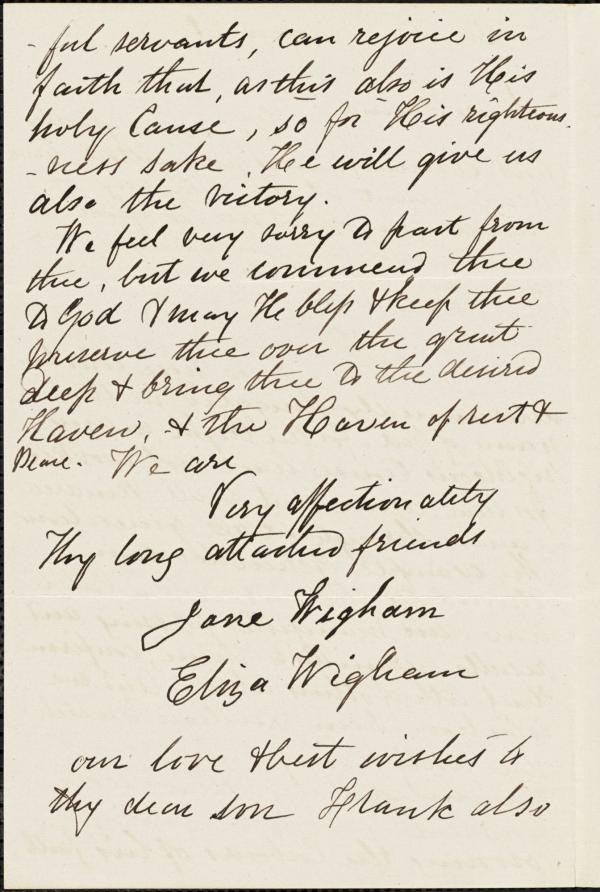 -ful servants, can rejoice in
faith that, as this also is His
holy Cause, so for His righteous-
-ness sake, He will give us
also the victory.
We feel very sorry to part from
thee, but we commend thee
to God & may He bless & keep thee
preserve thee over the great
deep & bring thee to the desired
Haven, & the Haven of rest &
Peace. We are
Very affectionately
Thy long attached friends
Jane Wigham
Eliza Wigham
our love & best wishes to
thy dear son Frank also